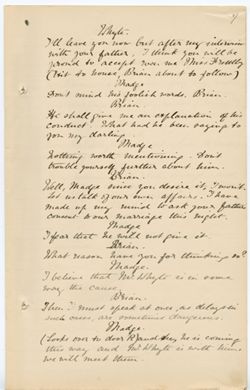 4
Whyte.
I'll leave you now but after my interview
with your father, I think you will be
proud to accept even me Miss Frettlby
(Exit to house, Brian about to follow)
Madge
Dont mind his foolish words, Brian.
Brian.
He shall give me an explanation of his
conduct. What had he been saying to
you my darling.
Madge
Nothing worth mentioning. Don't
trouble yourself further about him.
Brian.
Well, Madge since you desire it, I wont.
Let us talk of our own affairs. I have
made up my mind to ask your father's
consent to our marriage this night.
Madge
I fear that he will not give it.
Brian.
What reason have you for thinking so?
Madge.
I believe that Mr Whyte is in some
way, the cause.
Brian.
Then I must speak at once, as delays in
such cases, are sometimes dangerous.
Madge.
(Looks over to door R) and here he is coming
this way and Mr Whyte is with him
we will meet them.